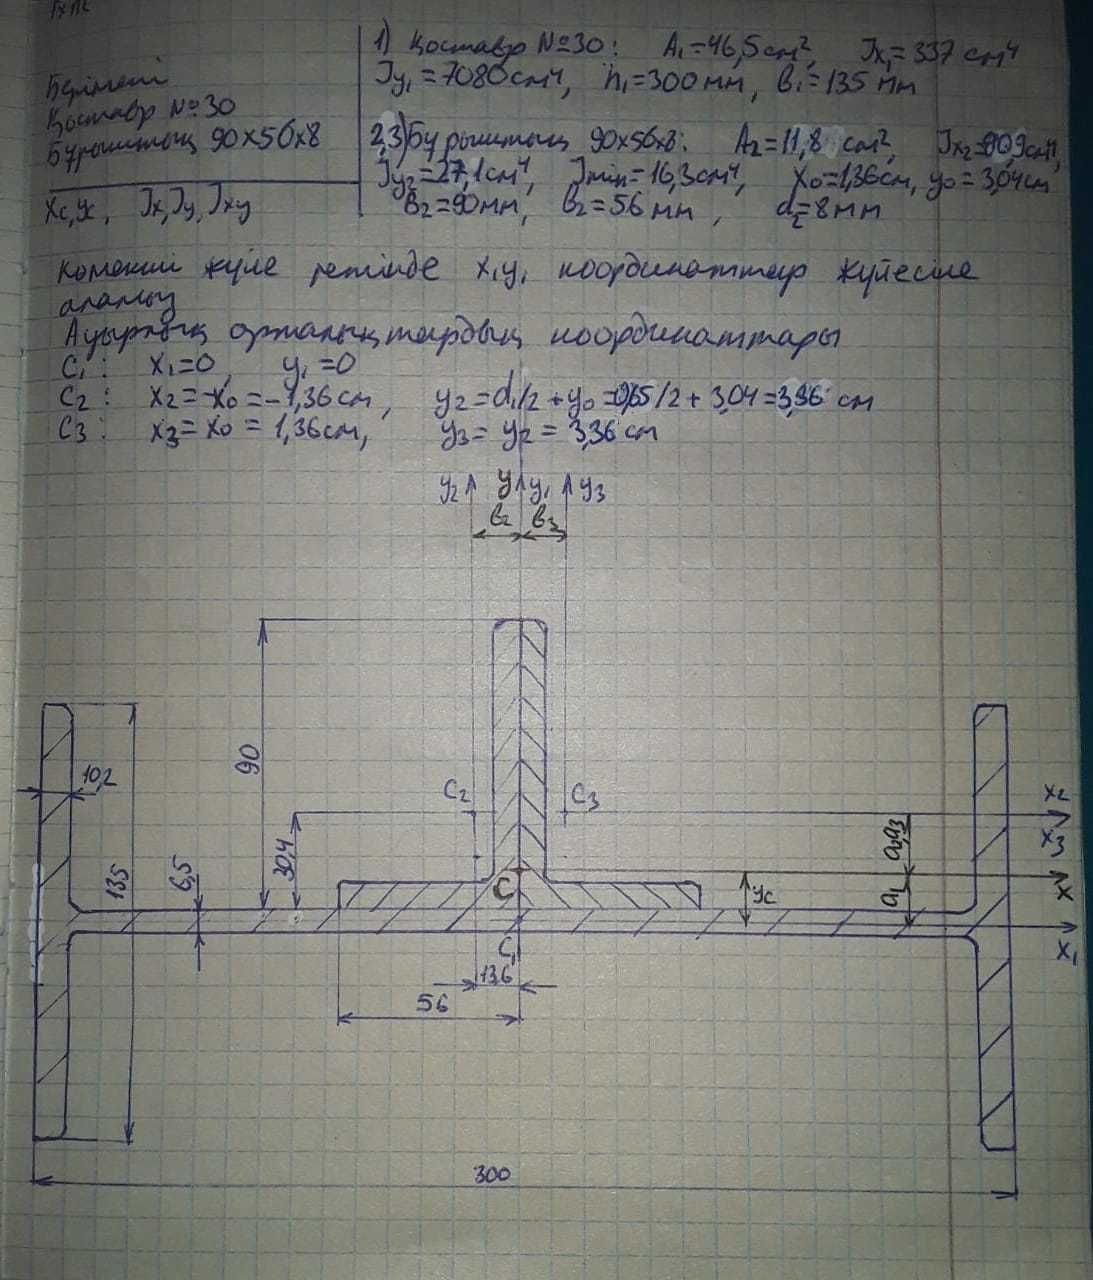 Берілгені
Қоставр №30
Бұрыштық 90×56×8
Xc, yc, Jx, Jy, Jxy
1) Қоставр №30: A₁=46,5 cm², Jx₁=337 cm⁴
Jy₁=7080 cm⁴, h₁=300 мм, b₁=135 мм
2,3) Бұрыштық 90×56×8: A₂=11,8 cm², Jx₂=90,9 cm⁴,
Jy₂=27,1 cm⁴, Jmin=16,3 cm⁴, x₀=1,36 cm, y₀=3,04 cm
B₂=90 мм, b₂=56 мм, d₂=8 мм
Көмекші жүйе ретінде x₁y₁ координаттар жүйесіне
аламыз
Ауырлық орталықтардың координаттары
C₁: x₁=0, y₁=0
C₂: x₂=-x₀=-1,36 cm, y₂=d₁/2+y₀=0,65/2+3,04=3,36 cm
C₃: x₃=x₀=1,36 cm, y₃=y₂=3,36 cm
y₂ y y₁ y₃
b₂ b₃
90
10,2
C₂ C₃
x₂
x₃
a₂a₃
30,4
135
6,5
C
yc
a₁
x
C₁
x₁
13,6
56
300